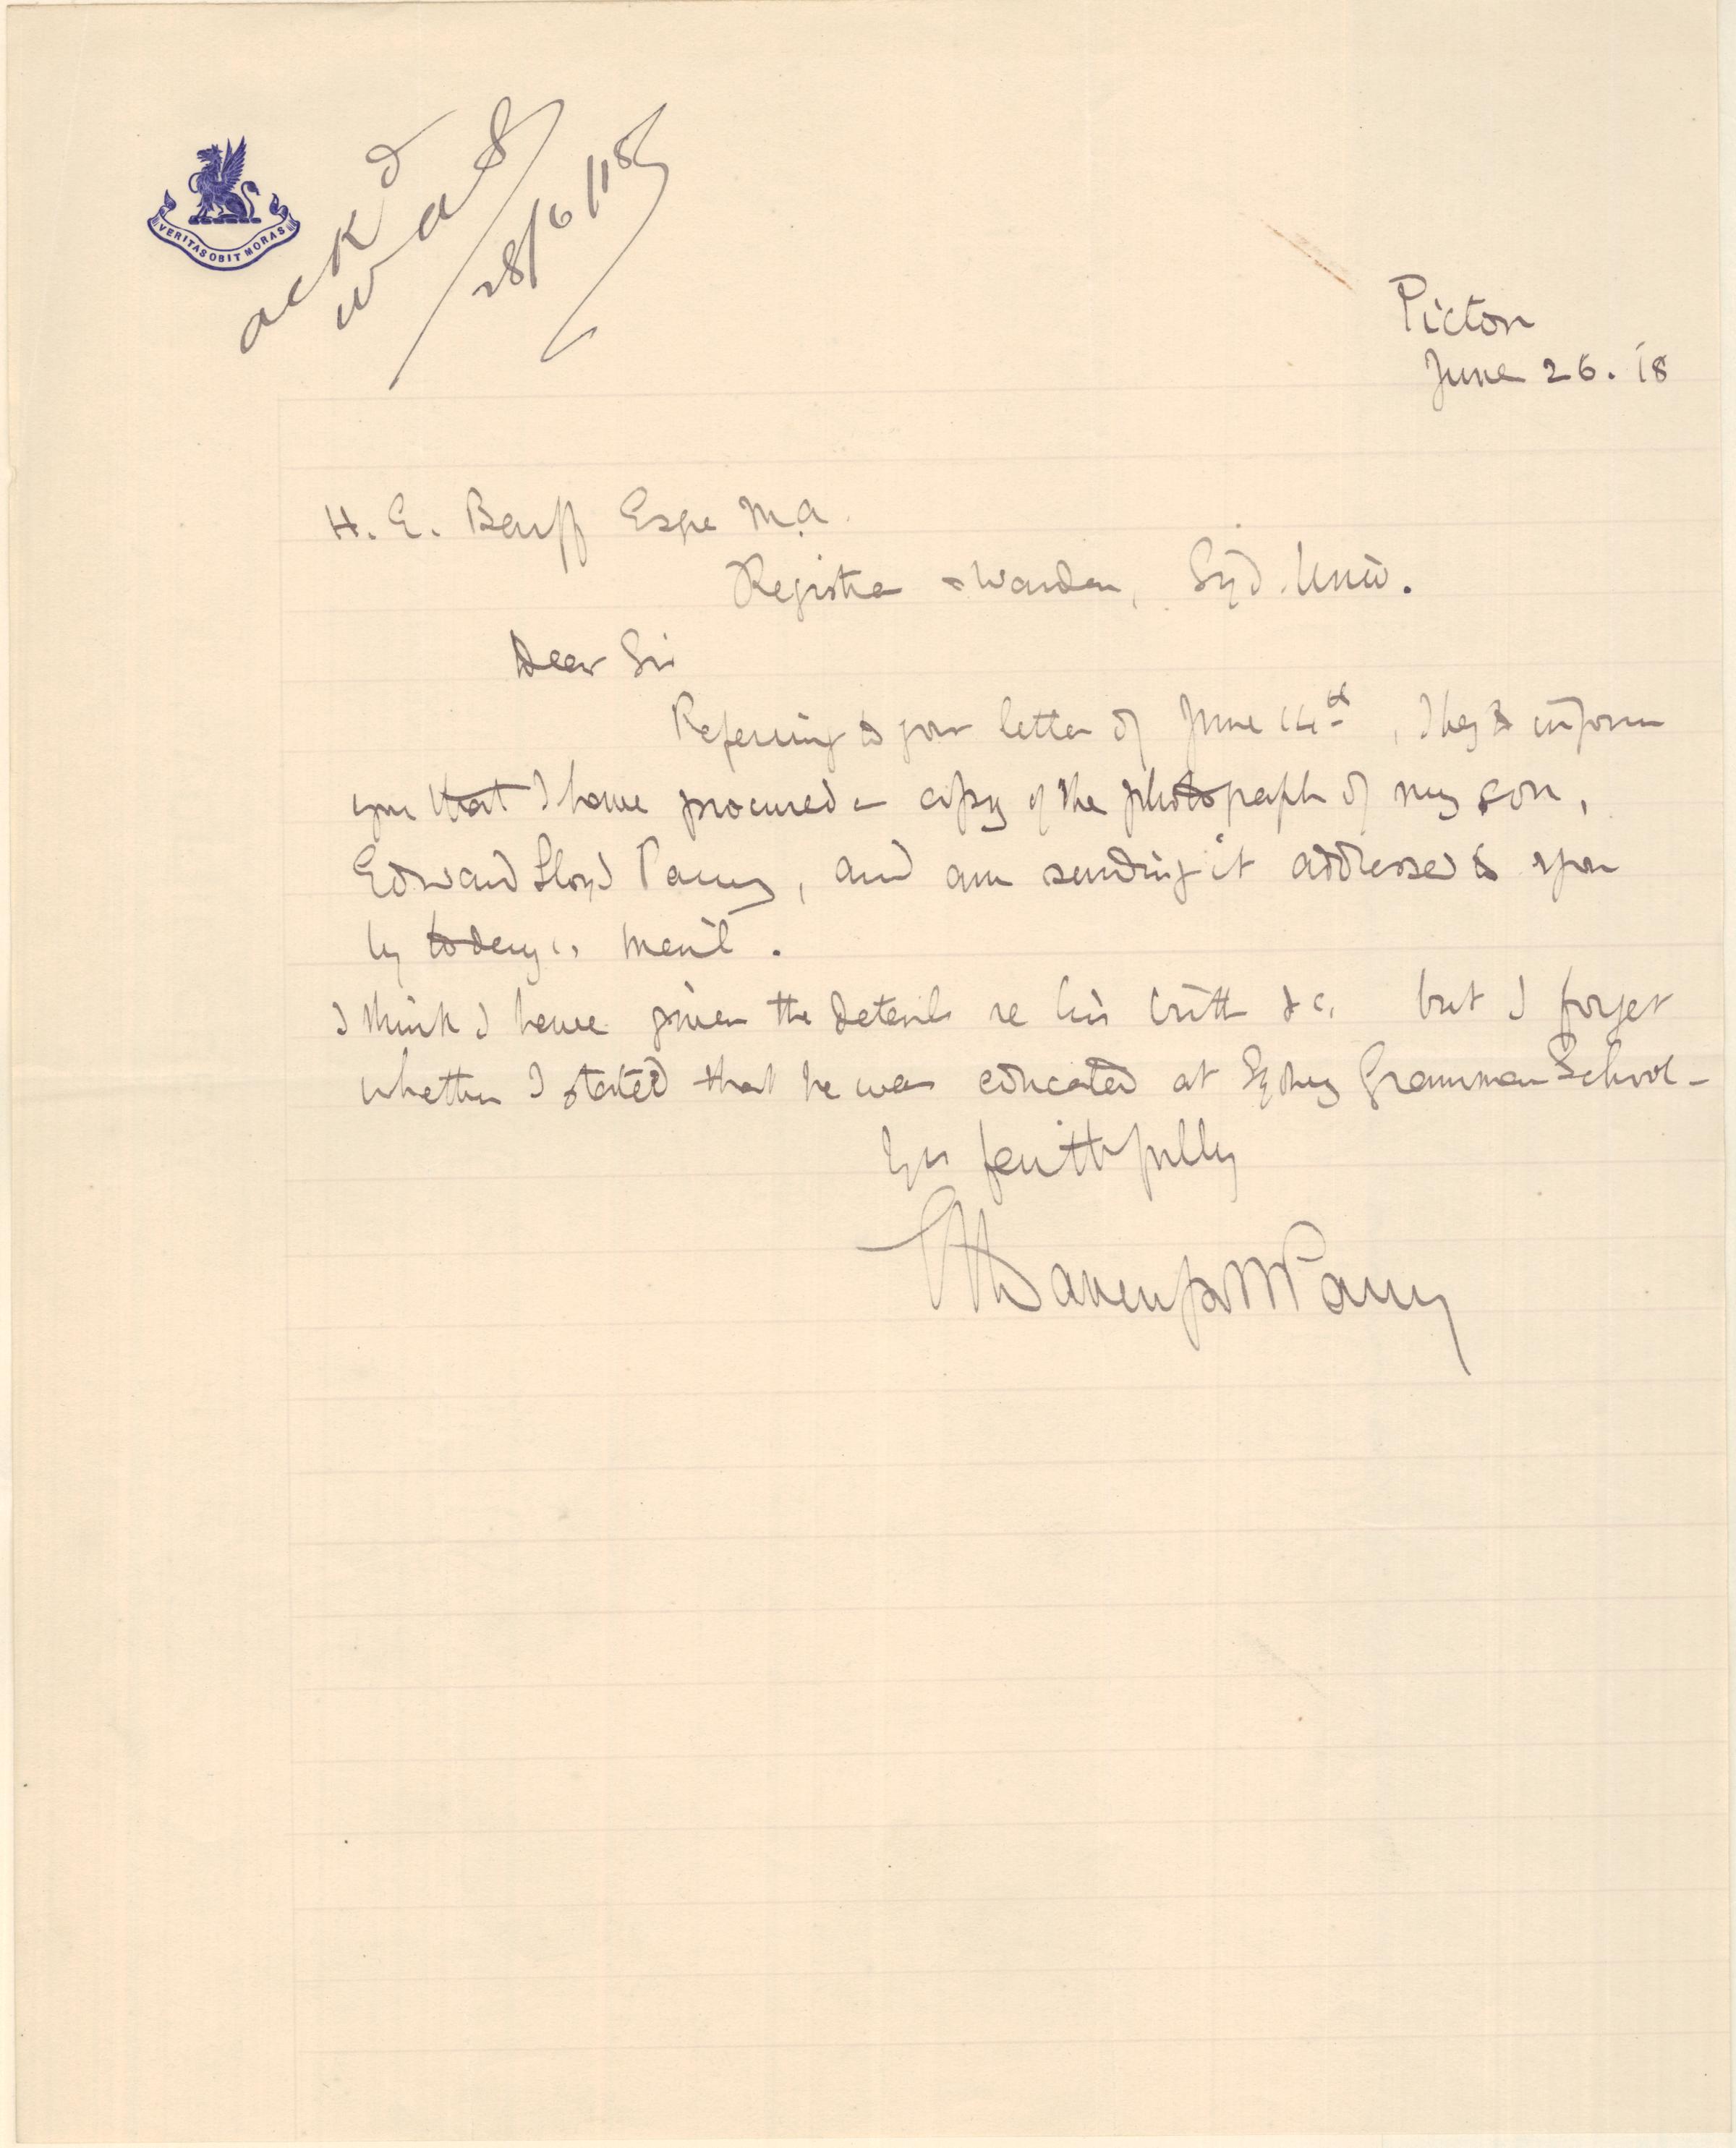 VERITAS OBIT MORAS
ackd
WAS
28/6/18
Picton
June 26. 18
H. E. Barff Esqe M.A.
Registrar & Warden, Syd. Univ.
Dear Sir
Referring to your letter of June 14th, I beg to inform
you that I have procured a copy of the photograph of my son,
Edward Lloyd Parry, and am sending it addressed to you
by today's mail.
I think I have given the details re his birth &c. but I forget
whether I stated that he was educated at Sydney Grammar School -
Yrs faithfully
Davenport Parry